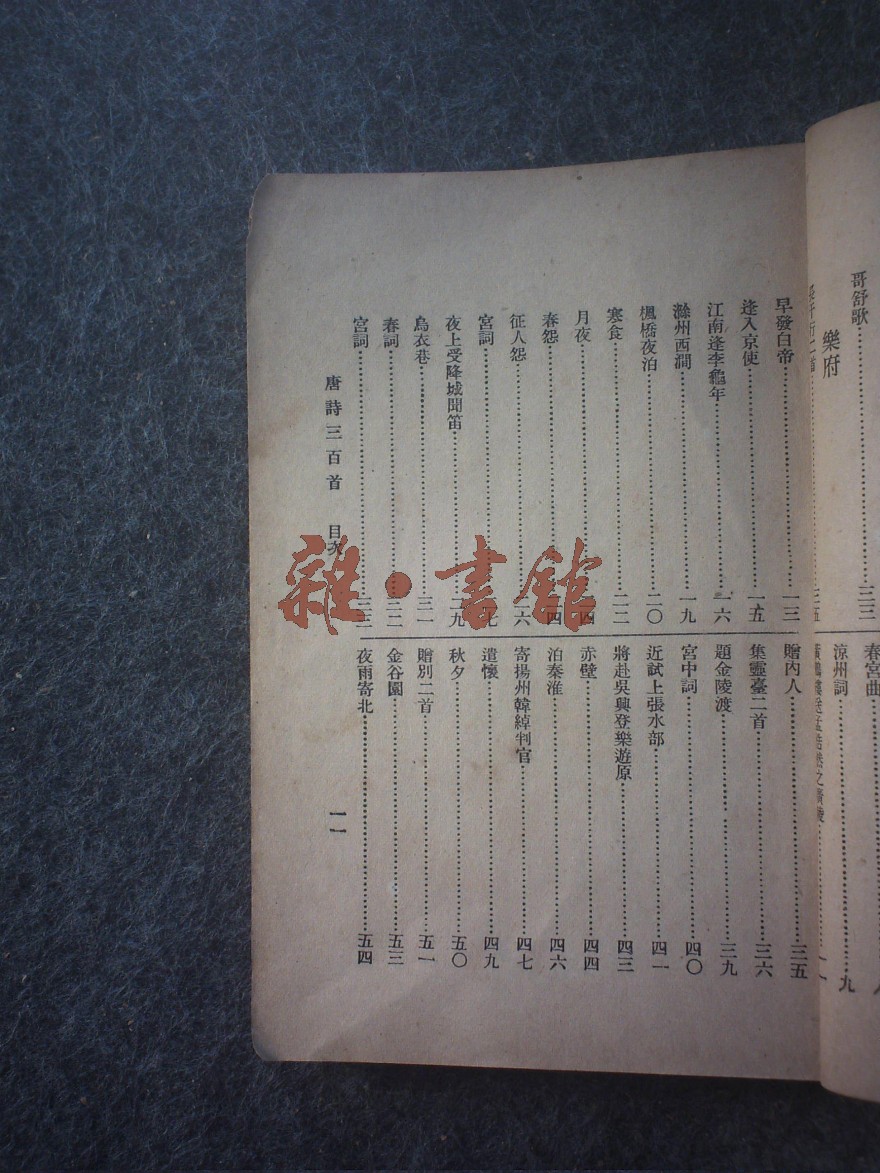 哥舒歌……三三
樂府
春宮曲
涼州詞……九
早發白帝……一三
逢入京使……一五
江南逢李龜年……一六
滁州西澗……一九
楓橋夜泊……二〇
寒食……二二
月夜……二四
春怨……二四
征人怨……二六
宮詞……二七
夜上受降城聞笛……二九
烏衣巷……三一
春詞……三二
宮詞……三三
贈內人……三五
集靈臺二首……三六
題金陵渡……三九
宮中詞……四〇
近試上張水部……四一
將赴吳興登樂遊原……四三
赤壁……四四
泊秦淮……四六
寄揚州韓綽判官……四七
遣懷……四九
秋夕……五〇
贈別二首……五一
金谷園……五三
夜雨寄北……五四
唐詩三百首 目次
一一
雜·書館